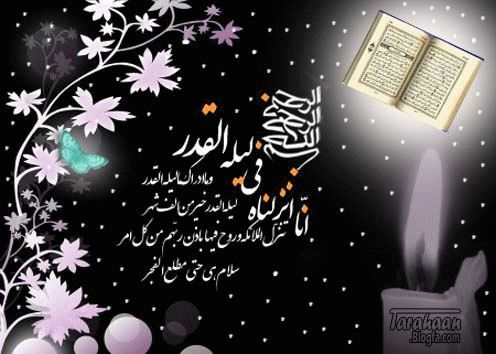 بسم الله الرحمن الرحیم
انّا انزلناه فی لیله القدر
وما ادراک ما لیله القدر
لیله القدر خیر من الف شهر
تنزل الملائکه و روح فیها باذن ربهم من کل امر
سلام هی حتی مطلع الفجر
Tarahaan
.Blogfa.com